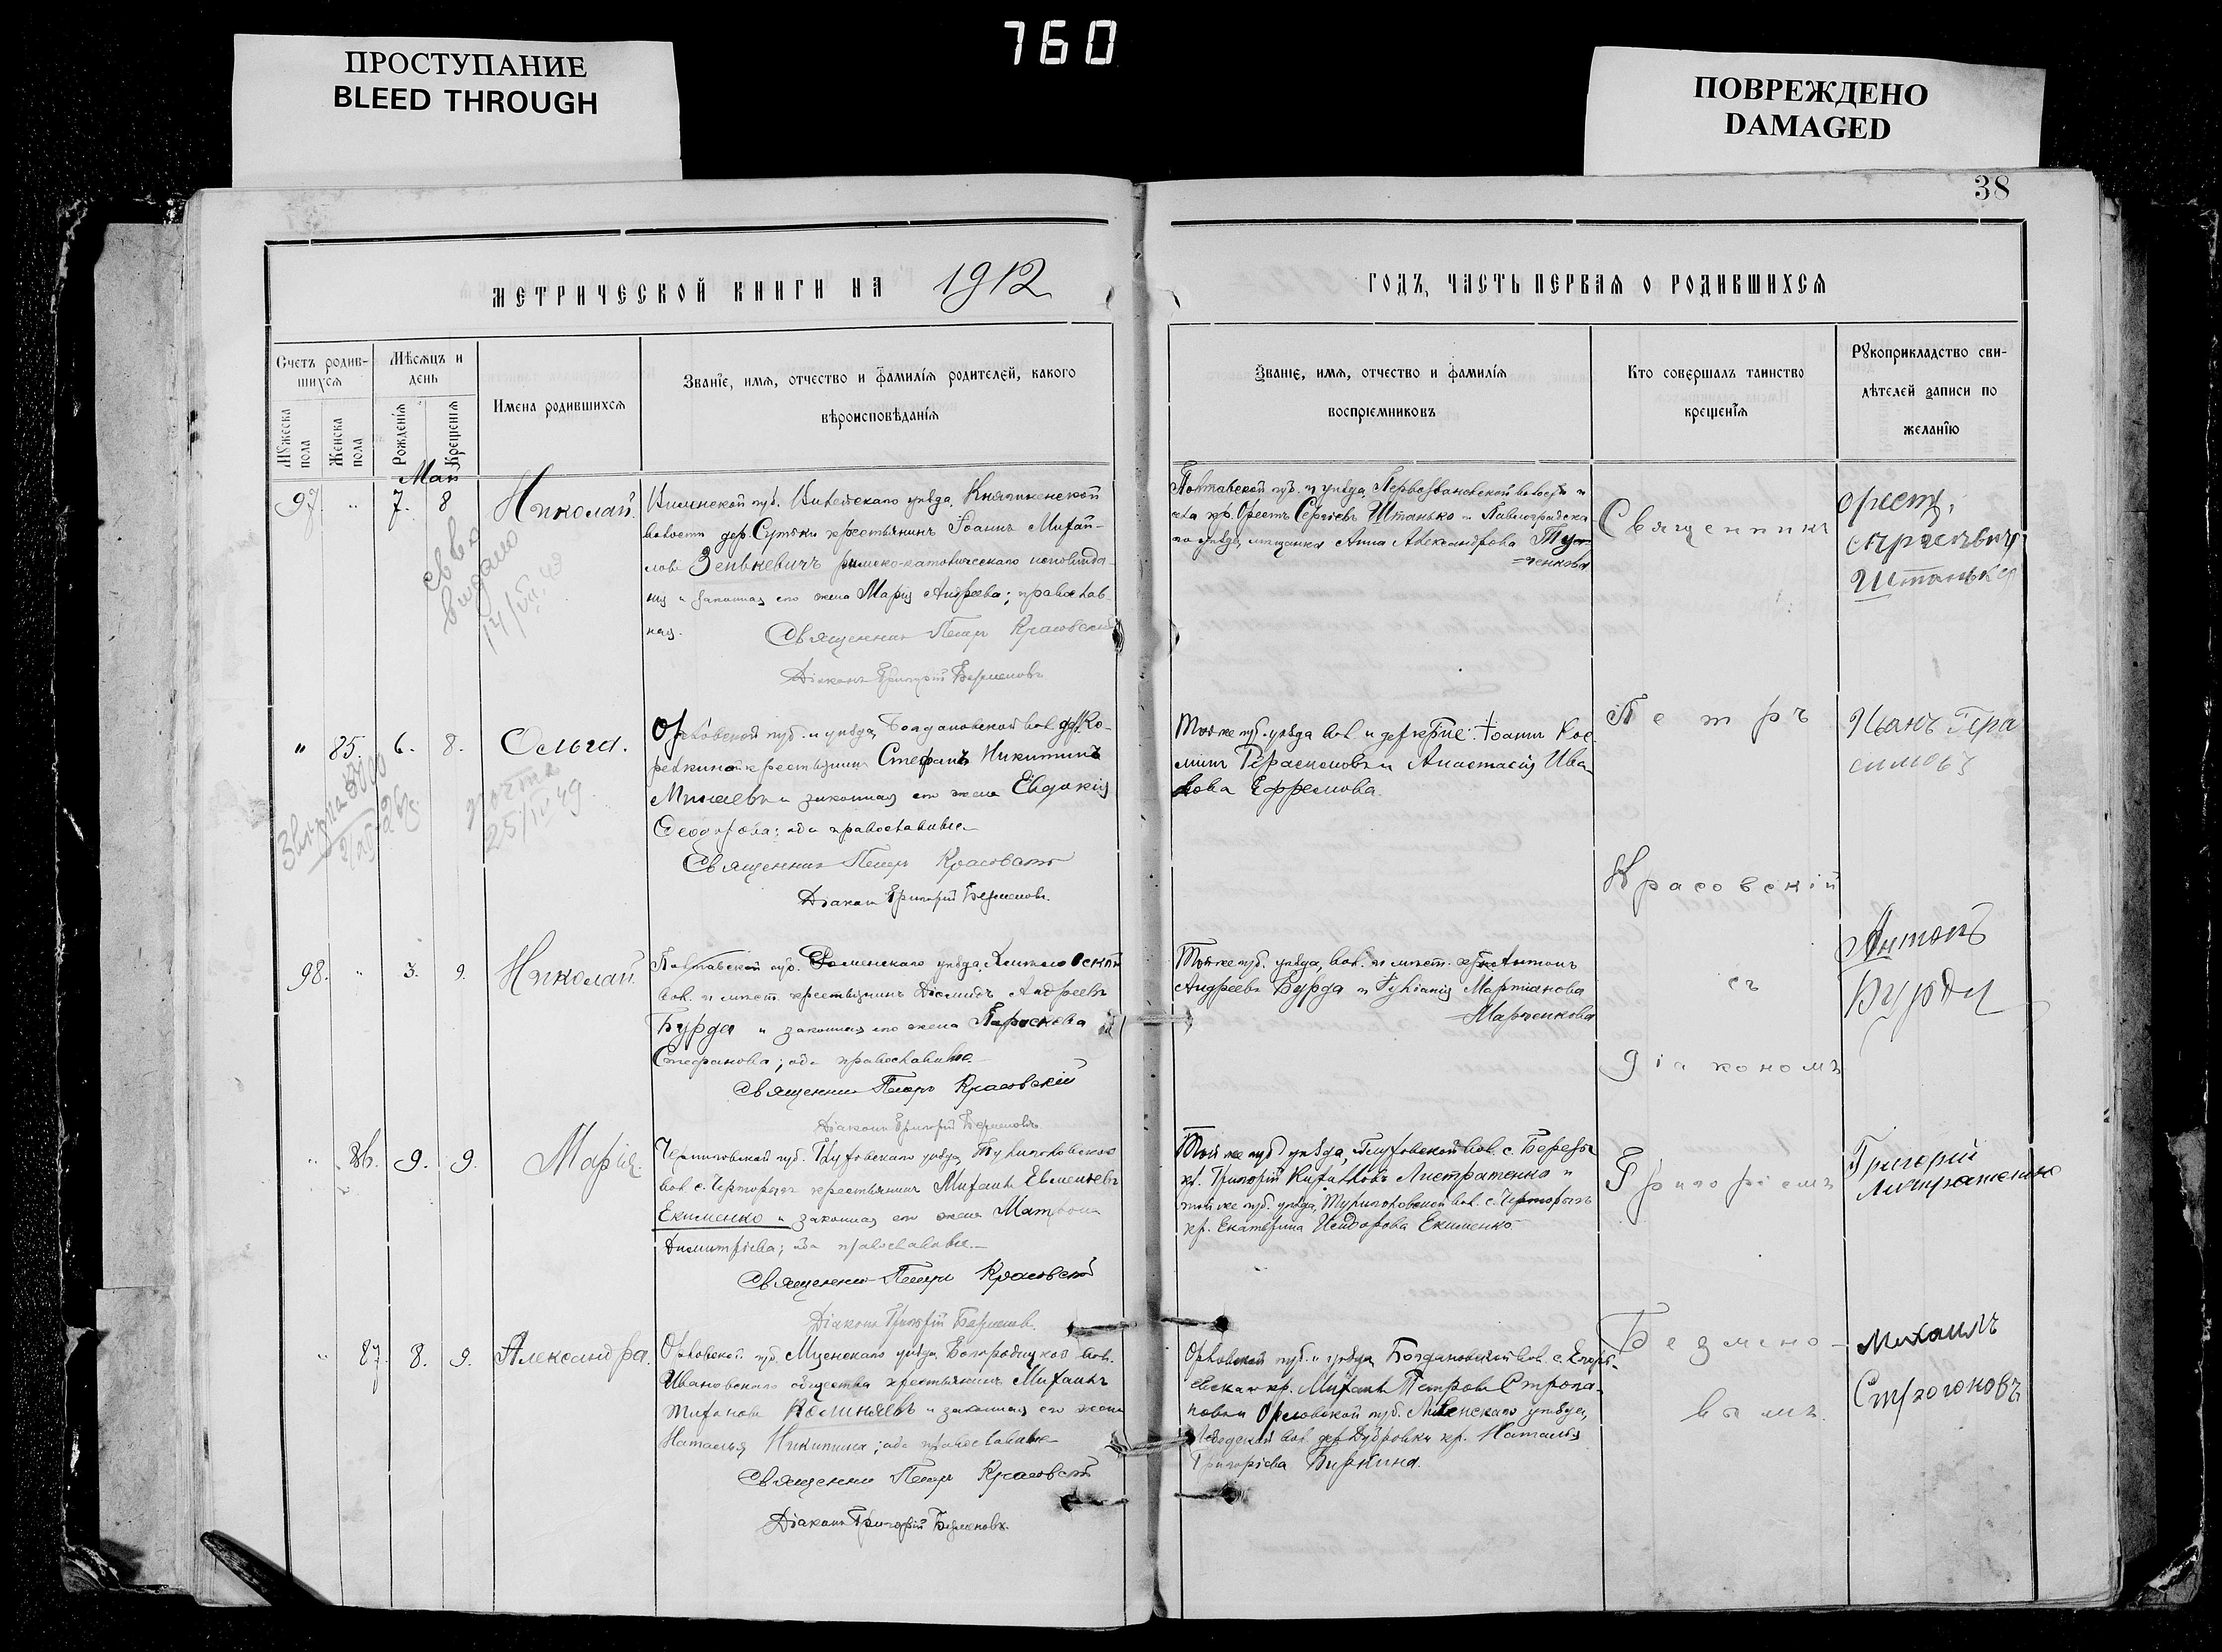 760
ПРОСТУПАНИЕ
BLEED THROUGH
ПОВРЕЖДЕНО
DAMAGED
38
МЕТРИЧЕСКОЙ КНИГИ НА 1912
ГОДЪ, ЧАСТЬ ПЕРВАЯ О РОДИВШИХСЯ
Счетъ родив-
шихся
Мужеска пола
Женска пола
Мѣсяцъ и
день
Рожденія
Крещенія
Имена родившихся
Званіе, имя, отчество и фамилія родителей, какого
вѣроисповѣданія
Званіе, имя, отчество и фамилія
воспріемниковъ
Кто совершалъ таинство
крещенія
Рукоприкладство сви-
дѣтелей записи по
желанію
Май
97. " 7. 8 Николай.
Виленской губ. Вилейскаго уѣзда, Княгиненской
волости дер. крестьянинъ Іоаннъ Михай-
ловъ Зенькевичъ римско-католическаго исповѣда-
нія и законная его жена Марія Андреева; православ-
ная.
Священникъ Петръ Красовскій
Діаконъ Григорій Безменовъ
Полтавской губ. и уѣзда, Первозвановской волости и
села кр. Орестъ Сергіевъ Штанько и Павлоградска-
го уѣзда, мѣщанка Анна Александрова
-ченкова
Орестъ
Сергиевичъ
Штанько
видано
14/VII 43
" 85. 6. 8. Ольга.
Орловской губ. и уѣзда, Богдановской вол. дер. Ко-
крестьянинъ Стефанъ Никитинъ
Минаевъ и законная его жена Евдокія
Ѳеодорова; оба православные
Священникъ Петръ Красовскій
Діаконъ Григорій Безменовъ.
25/IV 49
Той же губ. уѣзда вол. и дер. кр-не: Іоаннъ Кос-
минъ Герасимовъ и Анастасія Ива-
нова Ефремова.
Иванъ Гера
симовъ
98. " 3. 9. Николай
Полтавской губ. Роменскаго уѣзда,
вол. и мѣст. крестьянинъ Діомидъ Андреевъ
Бурда и законная его жена Параскева
Стефанова; оба православные
Священникъ Петръ Красовскій
Діаконъ Григорій Безменовъ
Той же губ. уѣзда, вол. и мѣст. кр-не Антонъ
Андреевъ Бурда и Іуліанія Мартіанова
Марченкова
Антонъ
Бурда
" 86. 9. 9. Марія.
Черниговской губ. Глуховскаго уѣзда, Тулиголовской
вол. с. Чорторіи крестьянинъ Михаилъ Евменіевъ
Екименко и законная его жена Матрона
Димитріева; оба православные
Священникъ Петръ Красовскій
Діаконъ Григорій Безменовъ.
Той же губ. уѣзда, Глуховской вол. с.
кр. Григорій Кирилловъ Листратенко и
той же губ. уѣзда, Тулиголовской вол. с.
кр. Екатерина Исидорова Екименко
Григорій
Листратенко
" 87. 8. 9. Александра.
Орловской губ. Мценскаго уѣзда, Богородицкой вол.
Ивановскаго общества крестьянинъ Михаилъ
Тихоновъ и законная его жена
Наталья Никитина; оба православные
Священникъ Петръ Красовскій
Діаконъ Григорій Безменовъ.
Орловской губ. и уѣзда, Богдановской вол. с.
кр. Михаилъ Петровъ Строга-
новъ и Орловской губ. Ливенскаго уѣзда,
вол. дер. Дубровки кр. Наталія
Григоріева Биркина.
Михаилъ
Строгоновъ
Священникъ
Петръ
Красовскій
съ
діакономъ
Григоріемъ
Безмено-
вымъ.